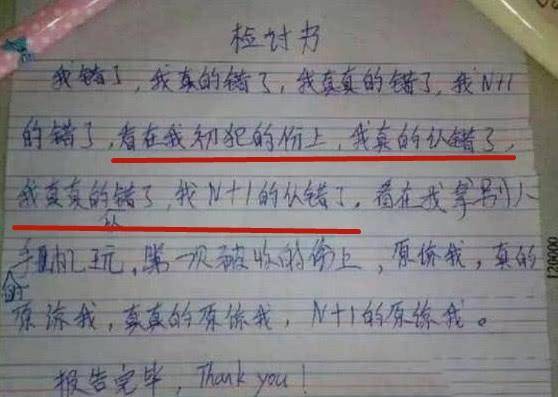 检讨书
我错了，我真的错了，我真真的错了，我N+1
的错了，看在我初犯的份上，我真的认错了，
我真真的错了，我N+1的认错了。看在我拿别人
认
手机玩，第一次被收的份上，原谅我，真的
原谅我，真真的原谅我，N+1的原谅我。
报告完毕，Thank you！